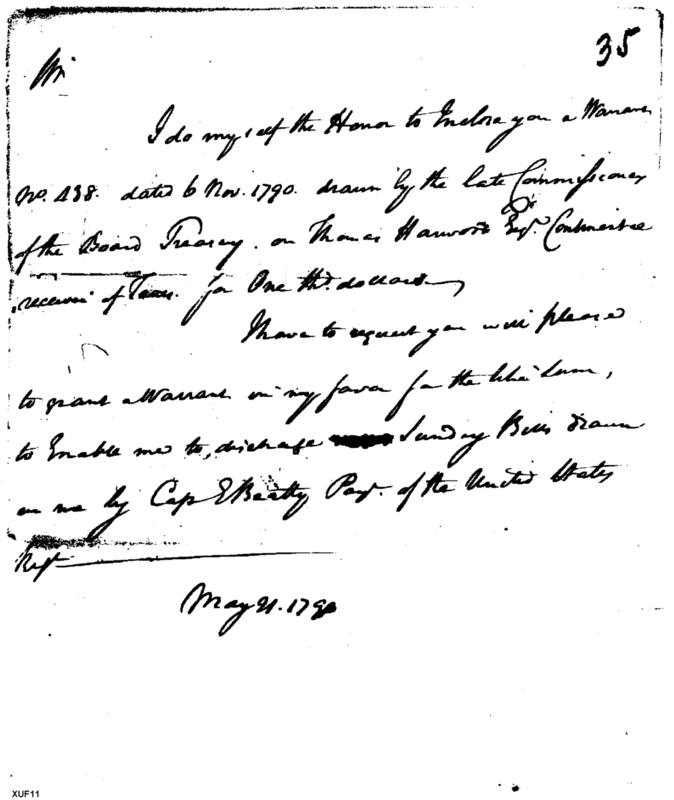 35
Sir
I do myself the Honor to Enclose you a Warrant
No. 438. dated 6 Nov. 1790. drawn by the late Commissioners
of the Board Treasury. on Thomas Harwood Esqr. Continental
receiver of Taxes. for One thd. dollars
I have to request you will please
to grant a Warrant in my favor for the like Sum,
to Enable me to discharge Sunday Bills drawn
on me by Cap E Beatty Payr. of the United States
Regt
May 21. 1790
XUF11